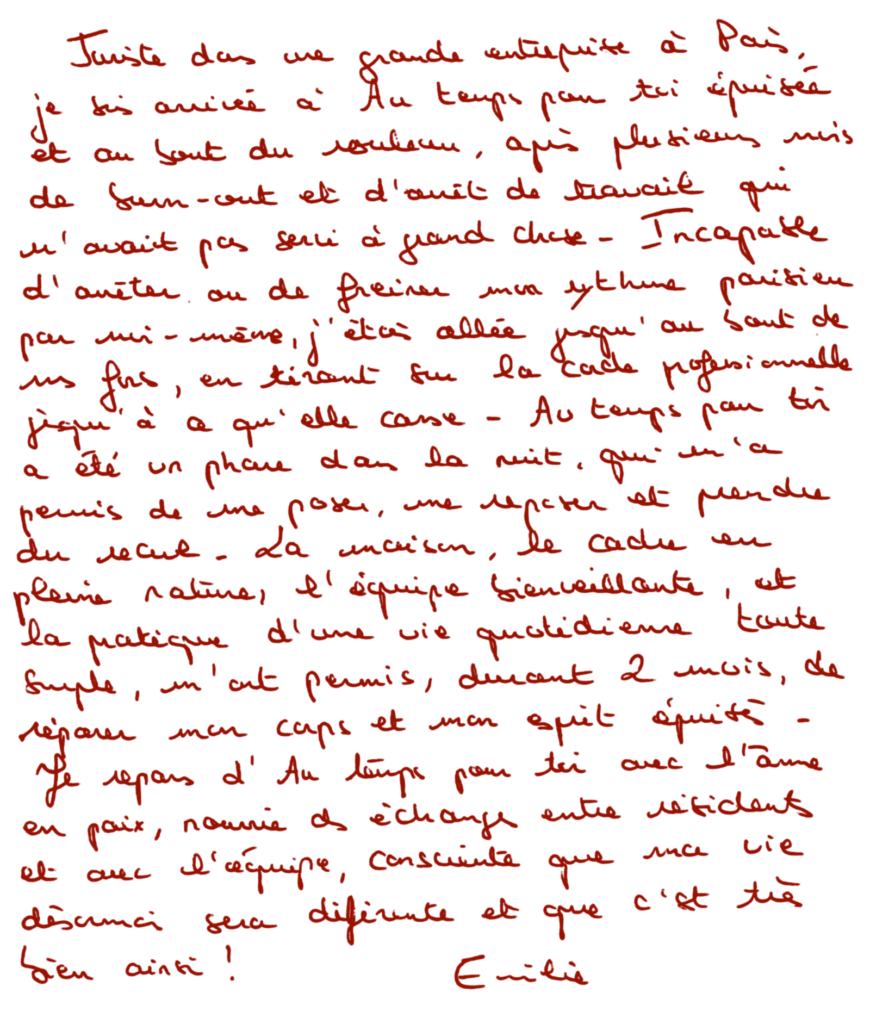 Juriste dans une grande entreprise à Paris,
je suis arrivée à Au temps pour toi épuisée
et au bout du rouleau, après plusieurs mois
de burn-out et d'arrêt de travail qui
n'avait pas servi à grand chose - Incapable
d'arrêter ou de freiner mon rythme parisien
par moi-même, j'étais allée jusqu'au bout de
mes forces, en tirant sur la corde professionnelle
jusqu'à ce qu'elle casse - Au temps pour toi
a été un phare dans la nuit, qui m'a
permis de me poser, me reposer et prendre
du recul - La maison, le cadre en
pleine nature, l'équipe bienveillante, et
la pratique d'une vie quotidienne toute
simple, m'ont permis, durant 2 mois, de
réparer mon corps et mon esprit épuisés -
Je repars d'Au temps pour toi avec l'âme
en paix, nourrie des échanges entre résidents
et avec l'équipe, consciente que ma vie
désormais sera différente et que c'est très
bien ainsi !
Emilie